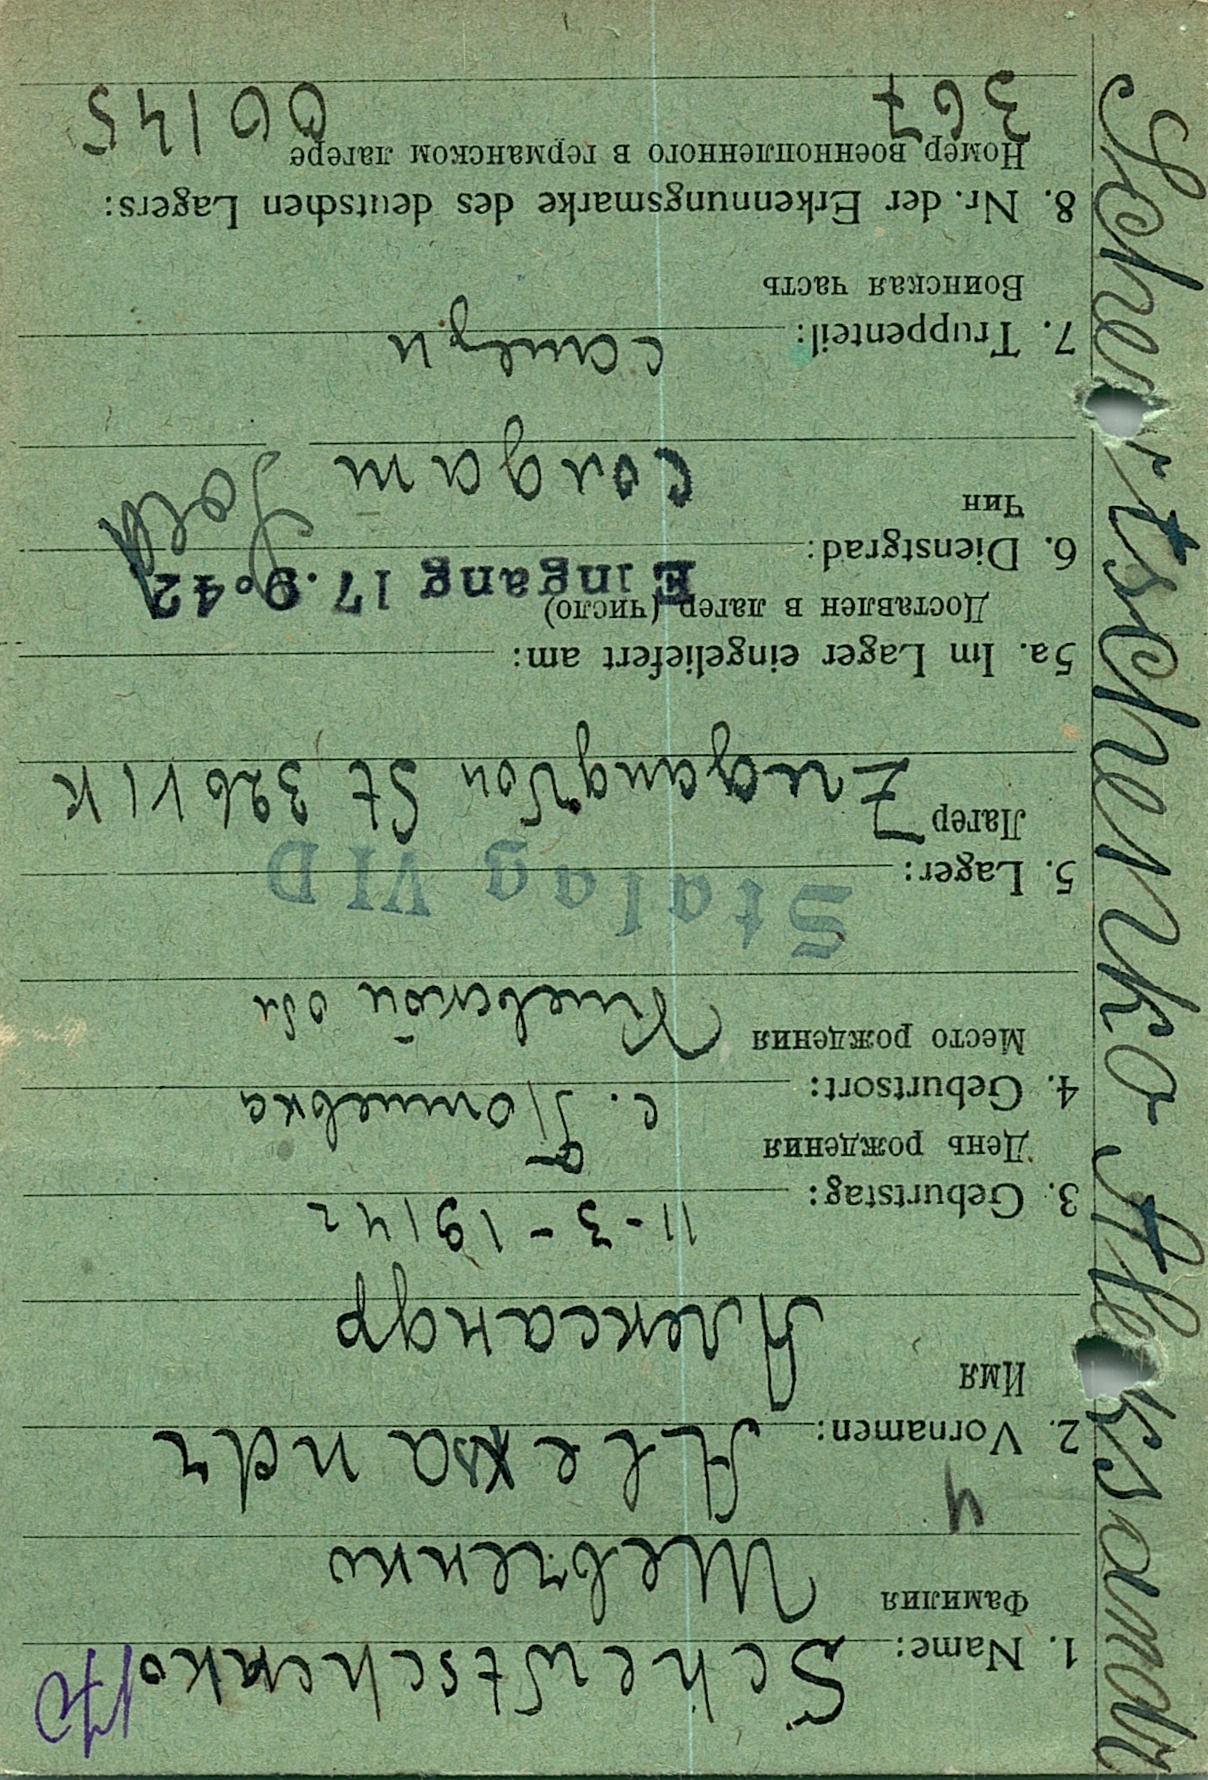 Schewtschenko
1. Name:
Фамилия
Шевченко
2. Vornamen: Alexandr
Имя
Александр
3. Geburtstag: 11-3-1914 г
День рождения
4. Geburtsort: с.
Место рождения Киевской обл
Stalag VID
5. Lager:
Лагер Zugang von St 326 VIK
5a. Im Lager eingeliefert am:
Доставлен в лагер (число) Eingang 17.9.42
6. Dienstgrad:
Чин
солдат Sold
7. Truppenteil:
Воинская часть
8. Nr. der Erkennungsmarke des deutschen Lagers:
Номер военнопленного в германском лагере
367
Aleksandr